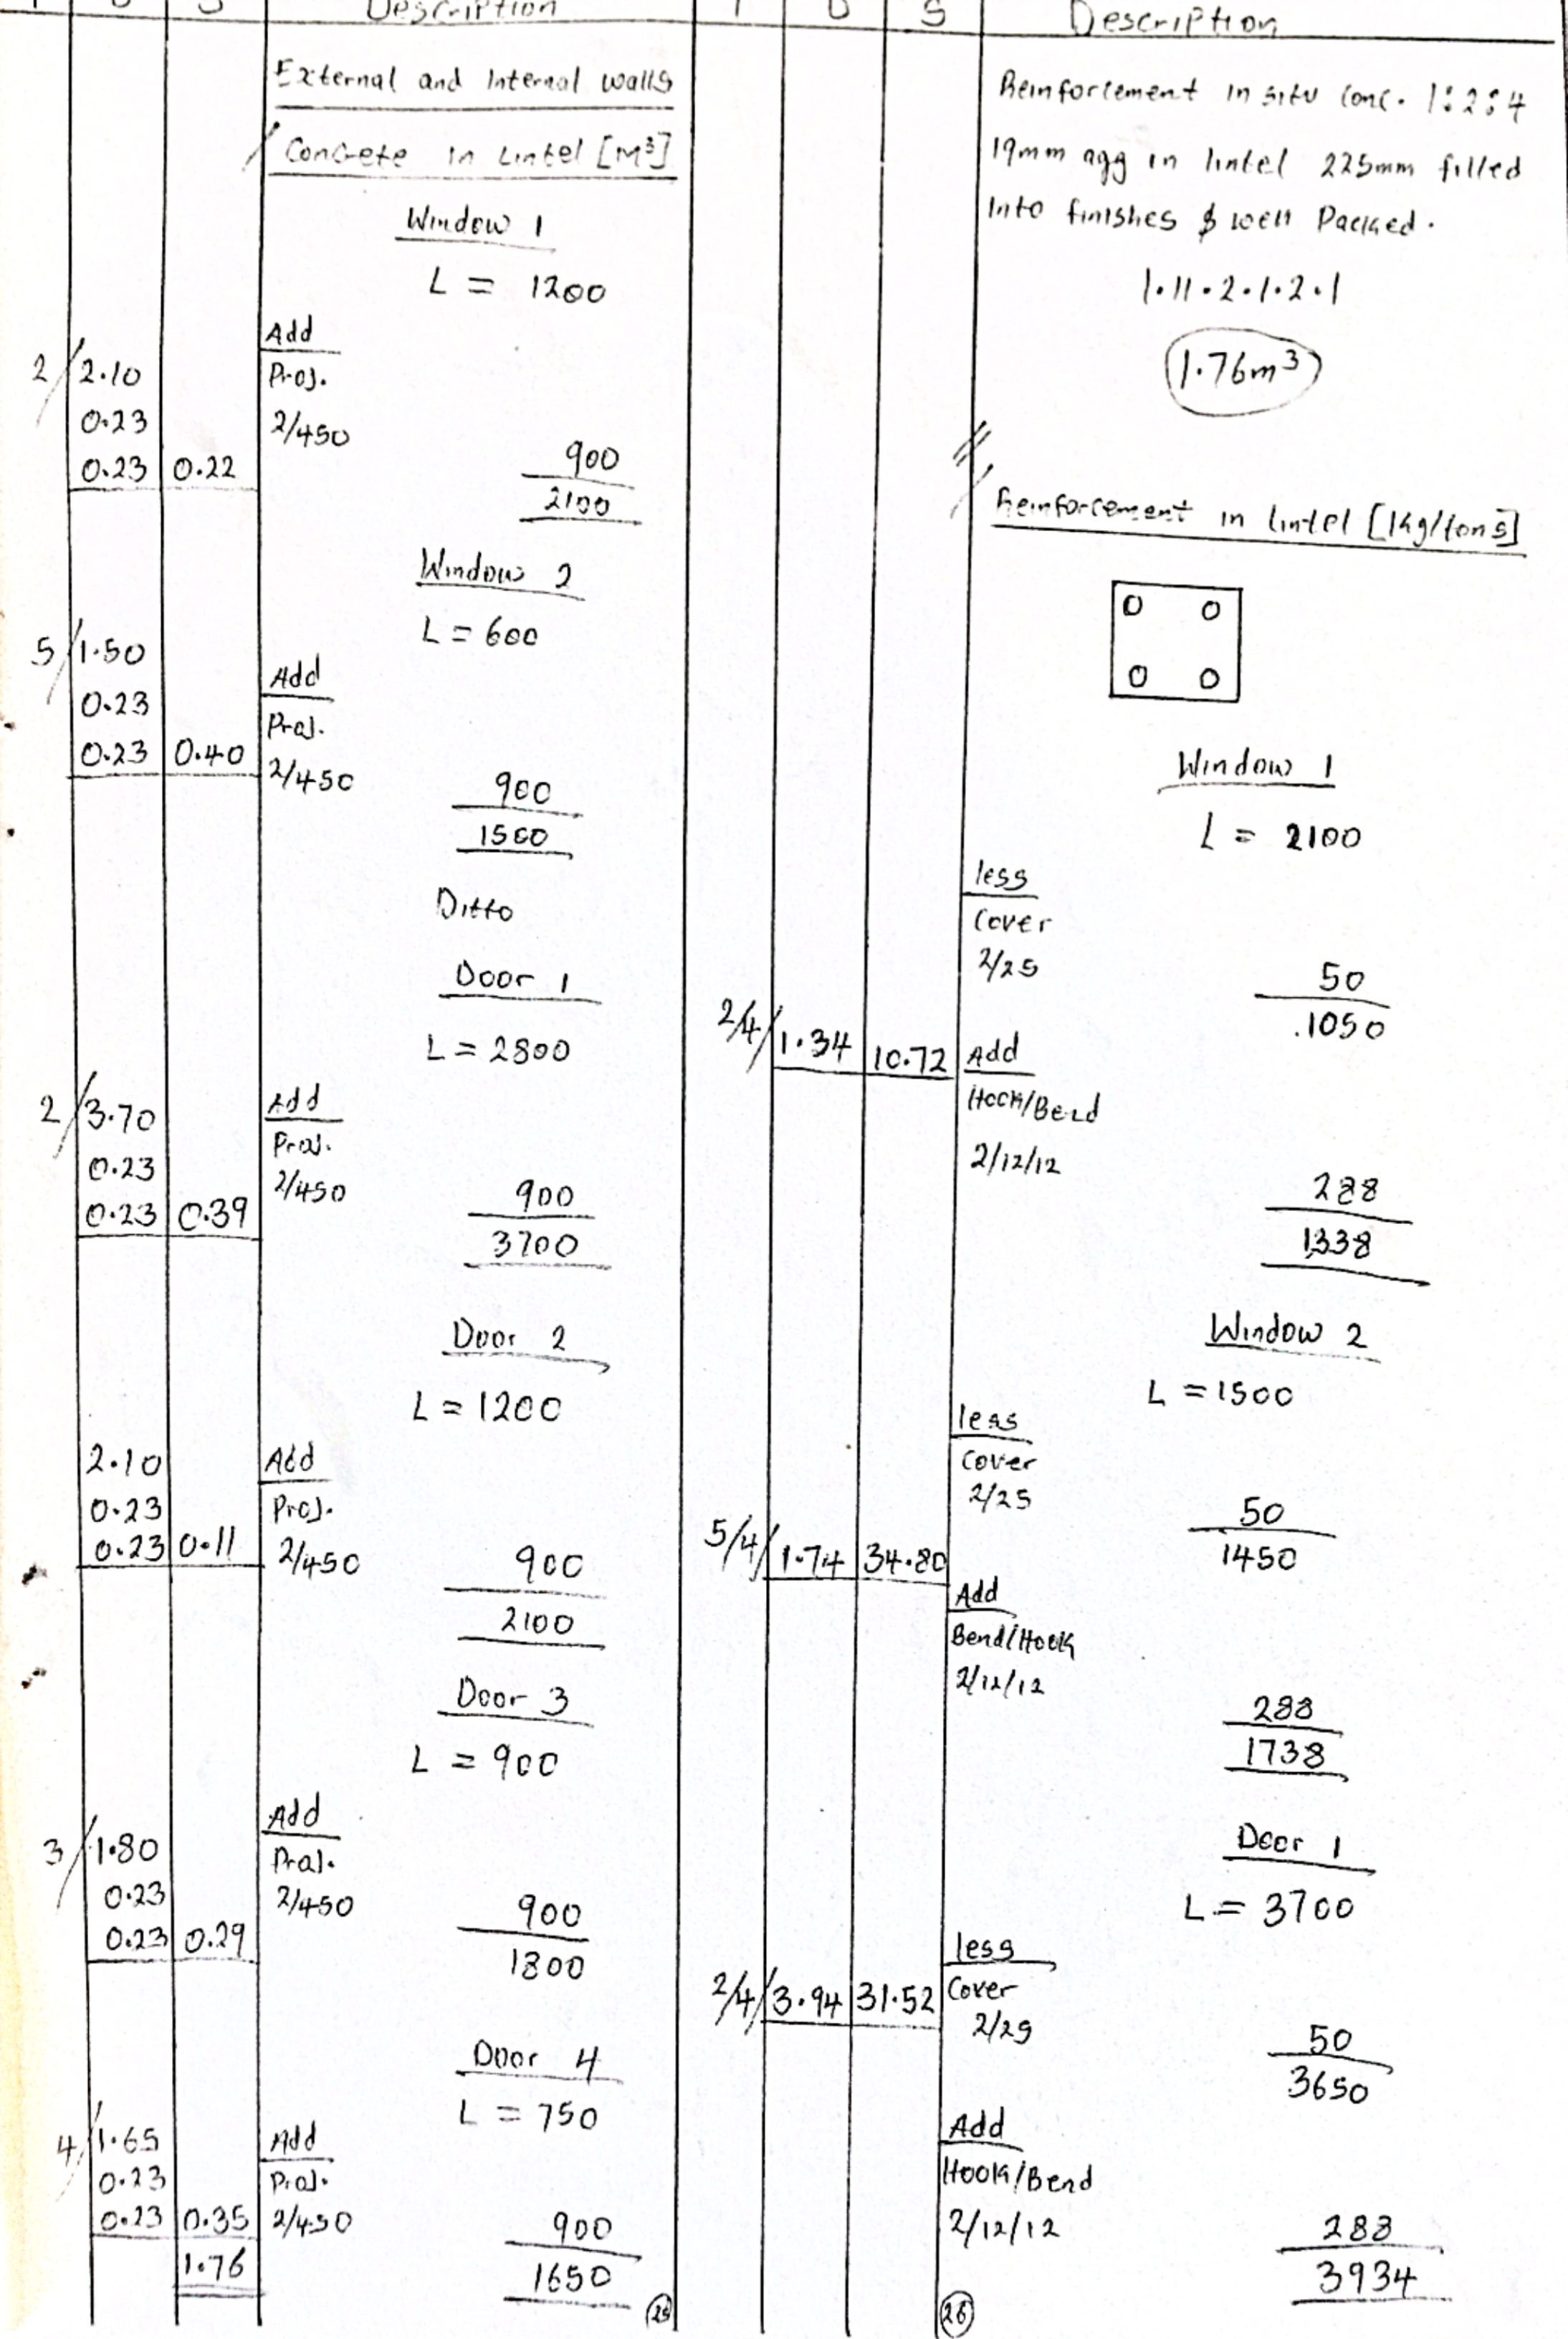 T D S Description
External and Internal walls
Concrete in Lintel [M³]
Window 1
L = 1200
Add
2/ 2.10 Proj.
0.23 2/450
0.23 0.22 900
2100
Window 2
L = 600
5/ 1.50
Add
0.23 Proj.
0.23 0.40 2/450 900
1500
Ditto
Door 1
L = 2800
2/ 3.70 Add
0.23 Proj.
2/450
0.23 0.39 900
3700
Door 2
L = 1200
2.10 Add
0.23 Proj.
0.23 0.11 2/450 900
2100
Door 3
L = 900
Add
3/ 1.80 Proj.
0.23 2/450
0.23 0.29 900
1800
Door 4
L = 750
4/ 1.65 Add
0.23 Proj.
0.23 0.35 2/450 900
1.76 1650
25
T D S Description
Reinforcement in situ conc. 1:2:4
19mm agg in lintel 225mm filled
Into finishes & well Packed.
1.11.2.1.2.1
1.76m³
Reinforcement in lintel [Kg/tons]
Window 1
L = 2100
less
Cover
2/25 50
.1050
2/4/ 1.34 10.72 Add
Hook/Bend
2/12/12 288
1338
Window 2
L = 1500
less
Cover
2/25 50
1450
5/4/ 1.74 34.80
Add
Bend/Hook
2/12/12 288
1738
Door 1
L = 3700
less
2/4/ 3.94 31.52 Cover
2/25 50
3650
Add
Hook/Bend
2/12/12 288
3934
26